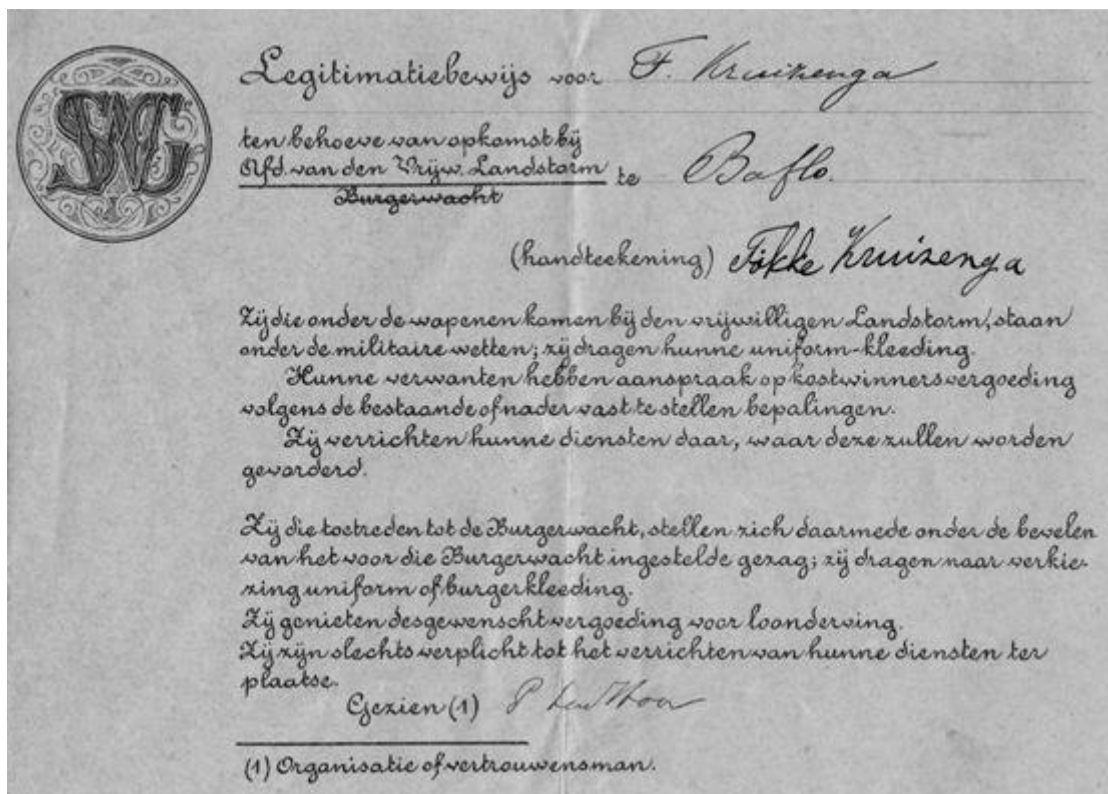 Legitimatiebewijs voor F. Kruizenga
ten behoeve van opkomst bij
Afd. van den Vrijw. Landstorm te Baflo.
Burgerwacht
(handteekening) Fokke Kruizenga
Zij die onder de wapenen komen bij den vrijwilligen Landstorm, staan
onder de militaire wetten; zij dragen hunne uniform-kleeding.
Hunne verwanten hebben aanspraak op kostwinnersvergoeding
volgens de bestaande of nader vast te stellen bepalingen.
Zij verrichten hunne diensten daar, waar deze zullen worden
gevorderd.
Zij die toetreden tot de Burgerwacht, stellen zich daarmede onder de bevelen
van het voor die Burgerwacht ingestelde gezag; zij dragen naar verkie-
zing uniform of burgerkleeding.
Zij genieten desgewenscht vergoeding voor loonderving.
Zij zijn slechts verplicht tot het verrichten van hunne diensten ter
plaatse.
Gezien (1) P
(1) Organisatie of vertrouwensman.